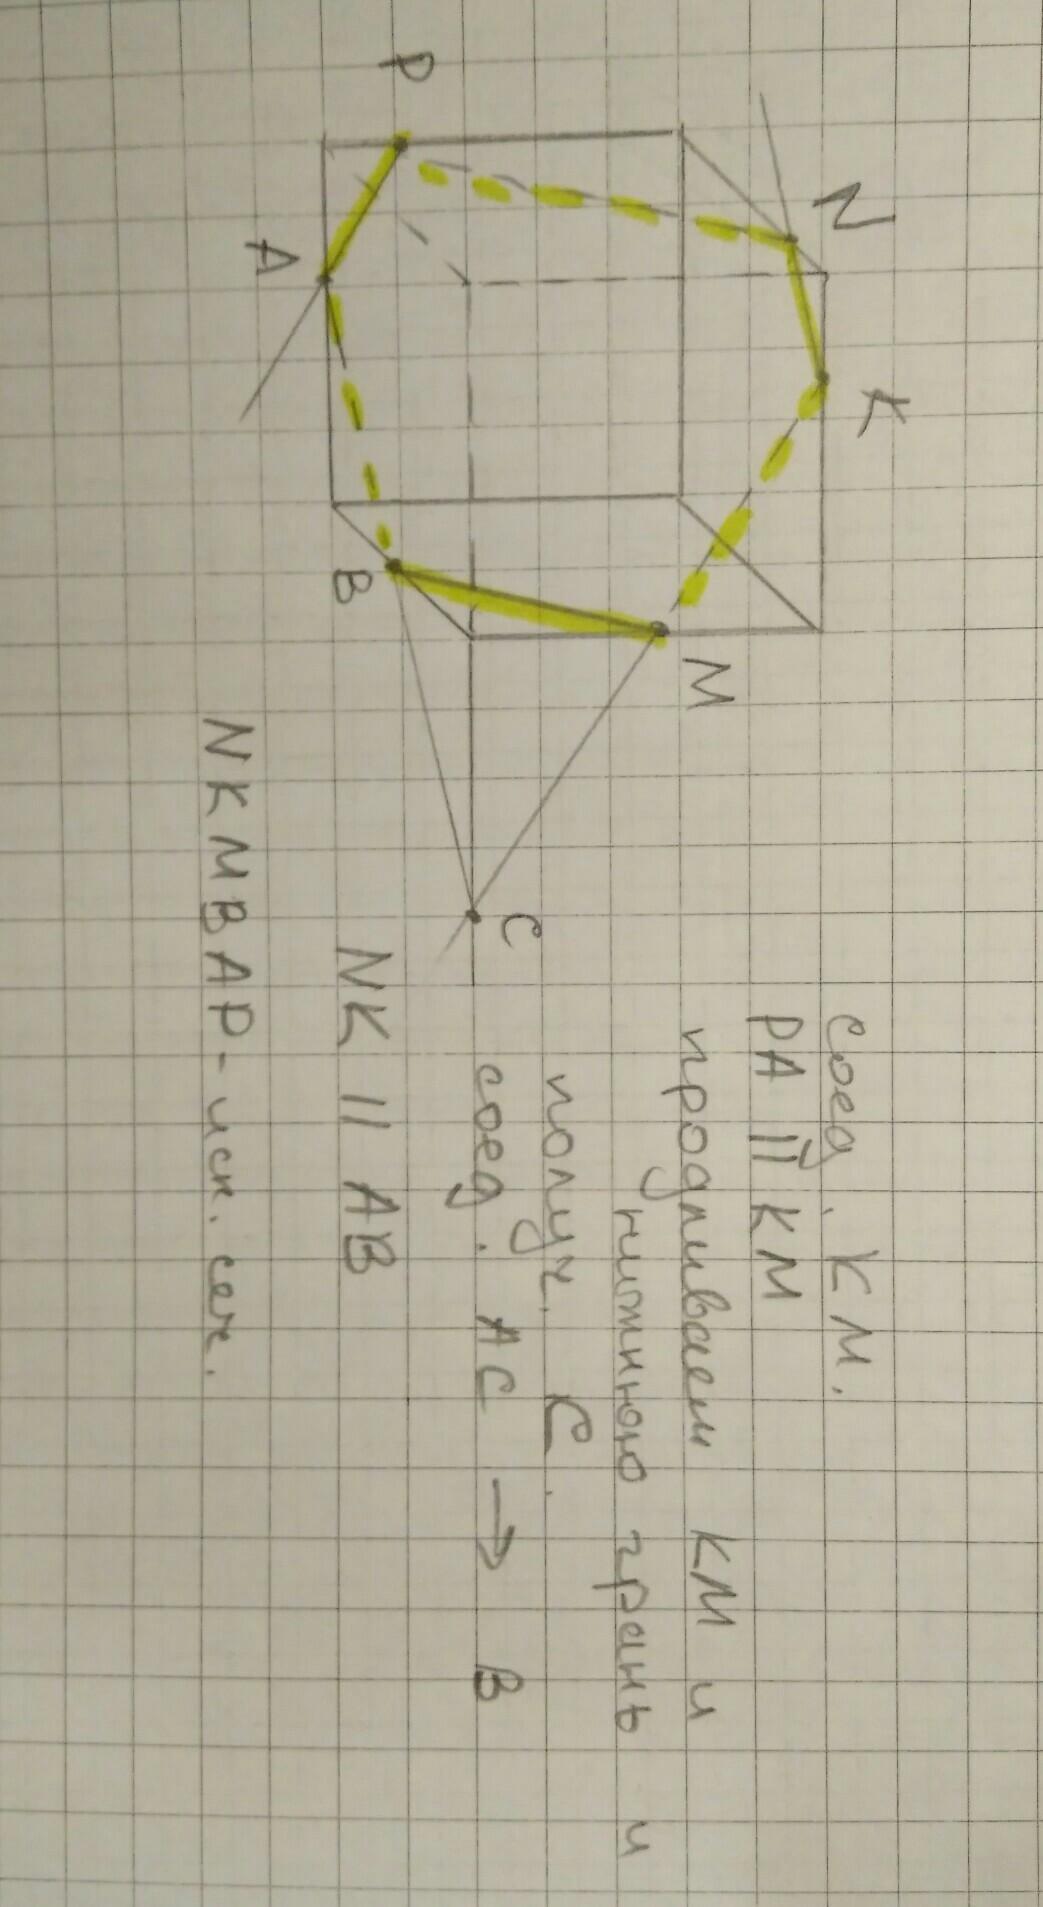 P
N
K
A
B
M
C
соед. КМ.
PA || KM
продливаем КМ и
нижнюю грань и
получ. С.
соед. АС → В
NK || AB
NKMBAP - иск. сеч.